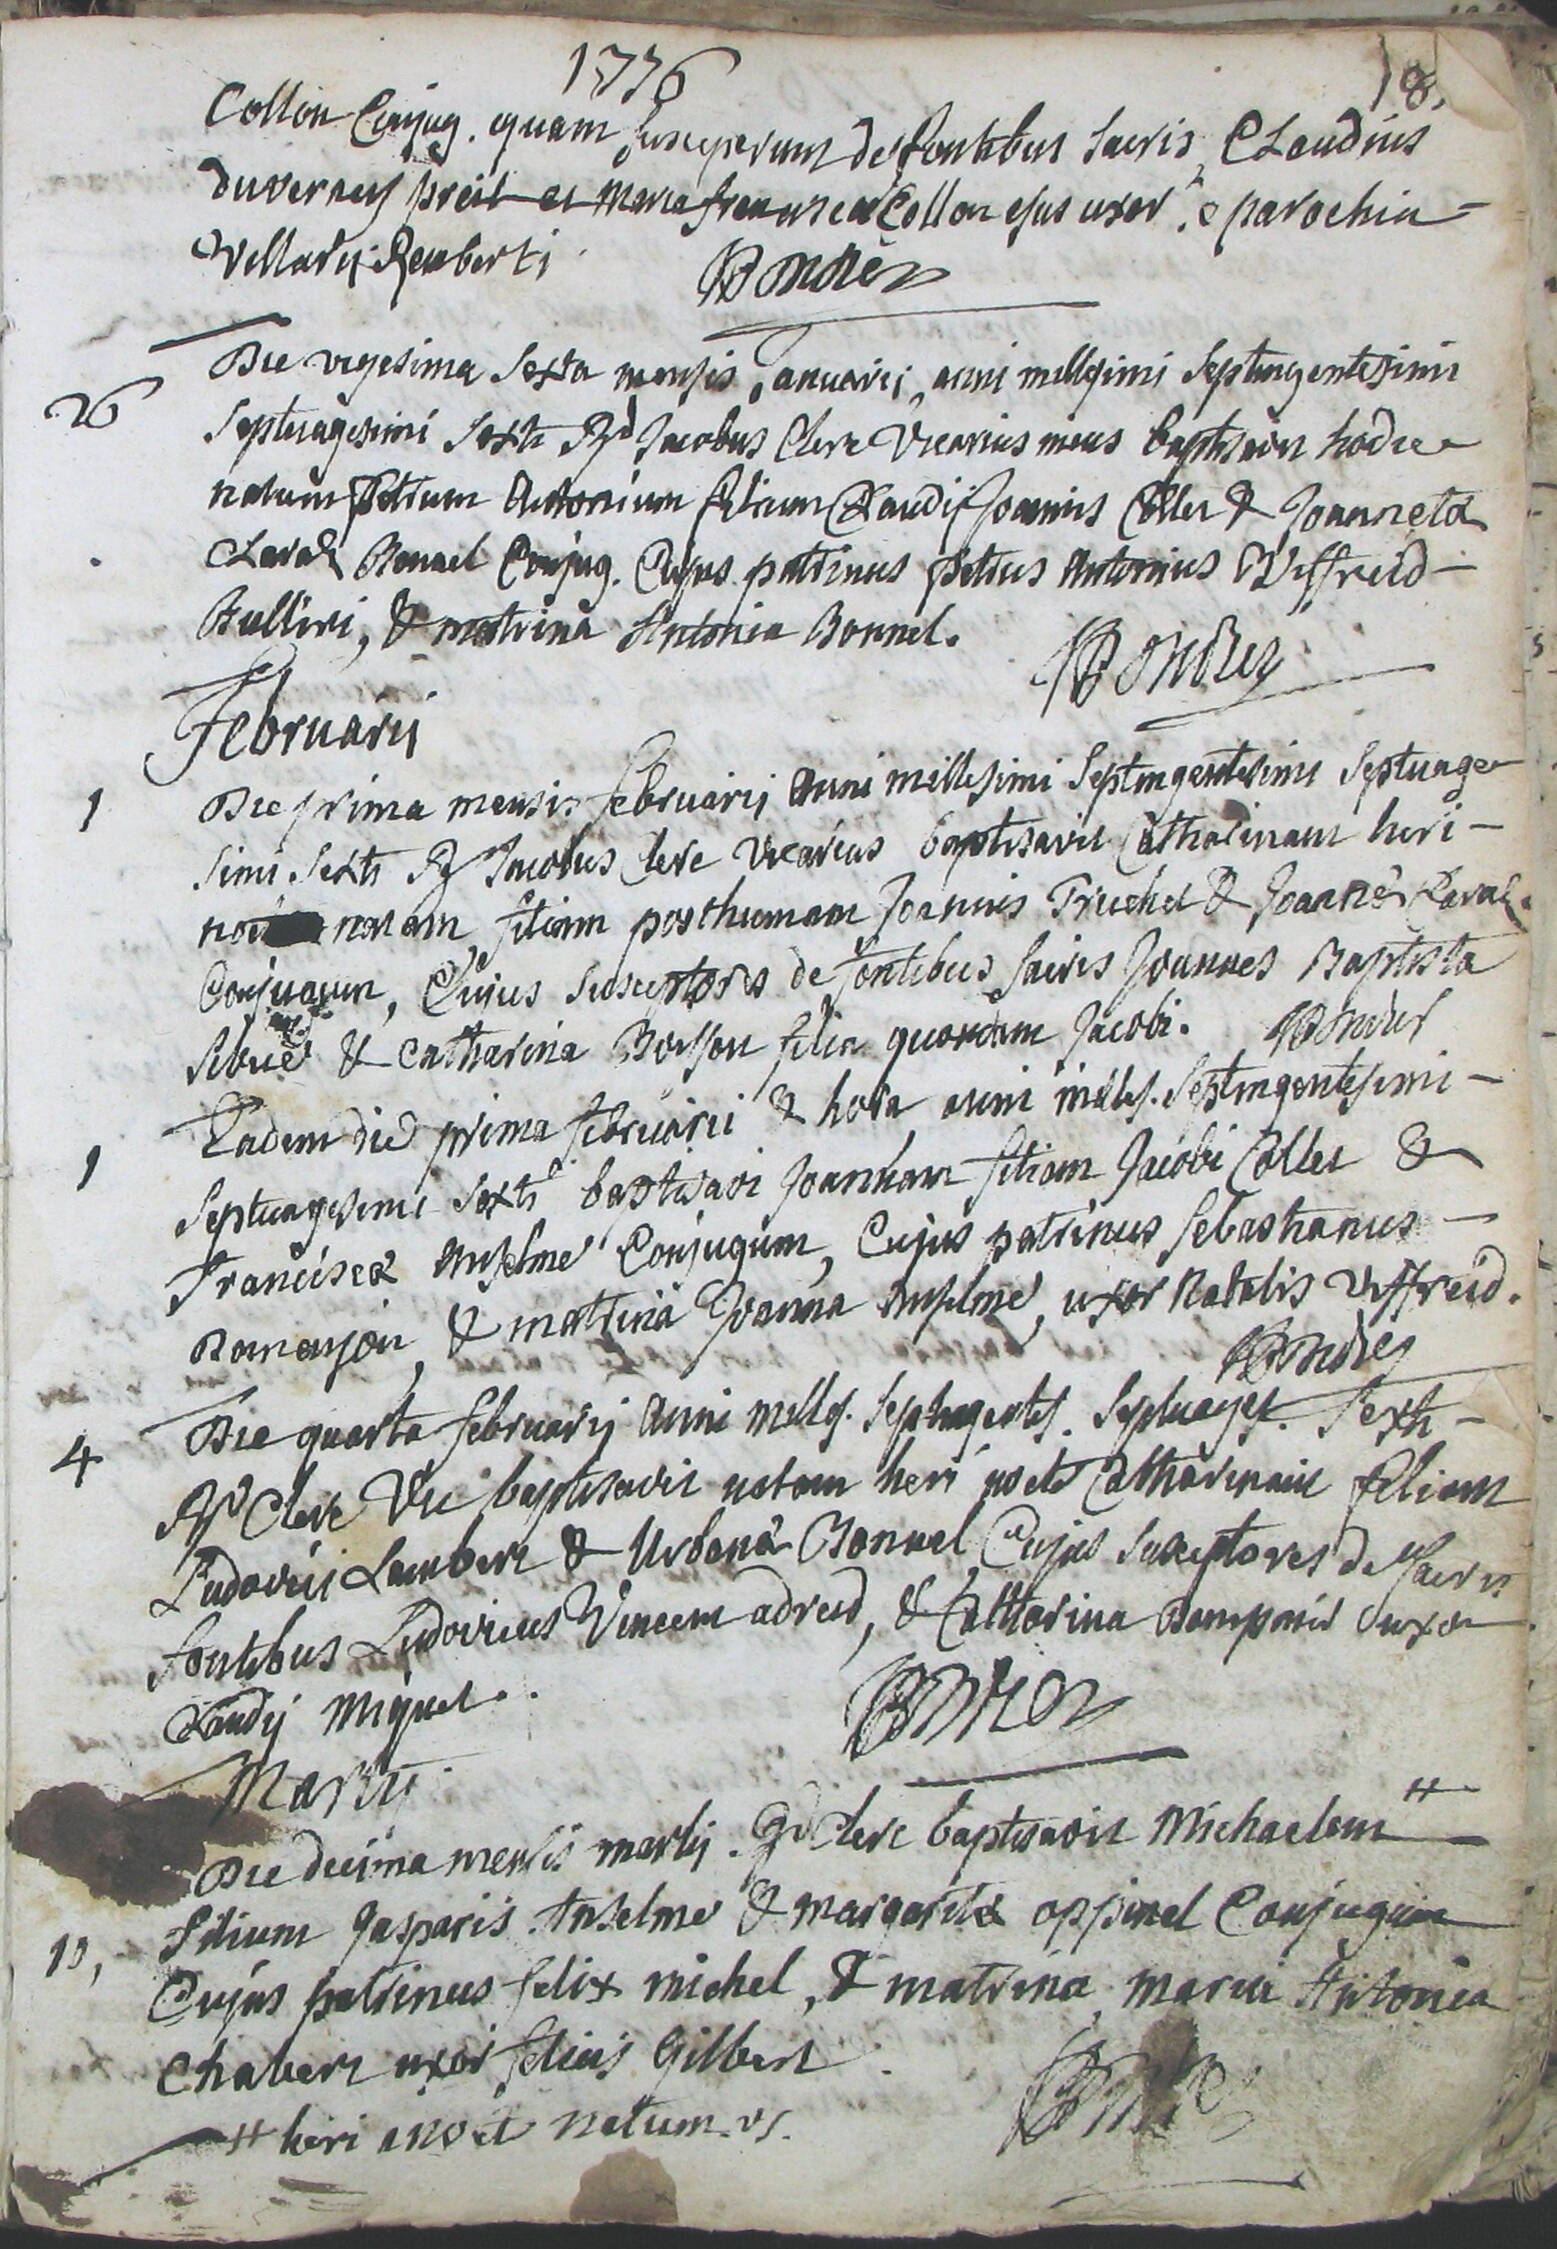 1776
18.
Collon Conjug. quam susceperunt de fontibus sacris, Claudius
duverney et Maria francisca Collon ejus uxor, e parochia
Villarij Remberti
Die vigesima sexta mensis Januarij, anni millesimi septingentesimi
26
septuagesimi sexti Rd Jacobus Clerc Vicarius meus baptisavit hodie
natum Petrum Antonium filium Claudij Joannis Collet & Joanneta
Claraz Bonnel Conjug. Cujus patrinus petrus Antonius Viffreid
& matrina Antonia Bonnel.
Februarij
1
Die prima mensis februarij Anni millesimi septingentesimi septuage
simi sexti Rd Jacobus Clerc vicarius baptisavit Catharinam heri
natam filiam posthumam Joannis Truchet & Joannæ Claraz
Conjugum, Cujus susceptores de fontibus sacris Joannes Baptista
& Catharina Bosson filia quondam Jacobi.
1
Eadem die prima februarii & hora anni milles. septingentesimi
septuagesimi sexti baptisavi Joannam filiam Jacobi Collet &
Franciscæ Anselme Conjugum, Cujus patrinus Sebastianus
Domenjon, & matrina Joanna Anselme, uxor Natalis Viffreid.
4
Die quarta februarij Anni milles. septingentes. septuages. sexti
Rd Clerc Vic baptisavit natam heri nocte Catharinam filiam
Ludovici Lambert & Urbana Bonnel, Cujus susceptores de sacris
fontibus Ludovicus Vincem adreid, & Catharina uxor
Claudij Miquet.
Martij
Die decima mensis martij. Rd Clerc baptisavit Michaelem #
10,
filium Gasparis Anselme & margaritæ oppinel Conjugum
Cujus patrinus felix michel, & matrina maria Antonia
Chabert uxor felicis Gilbert
# heri nocte natum.